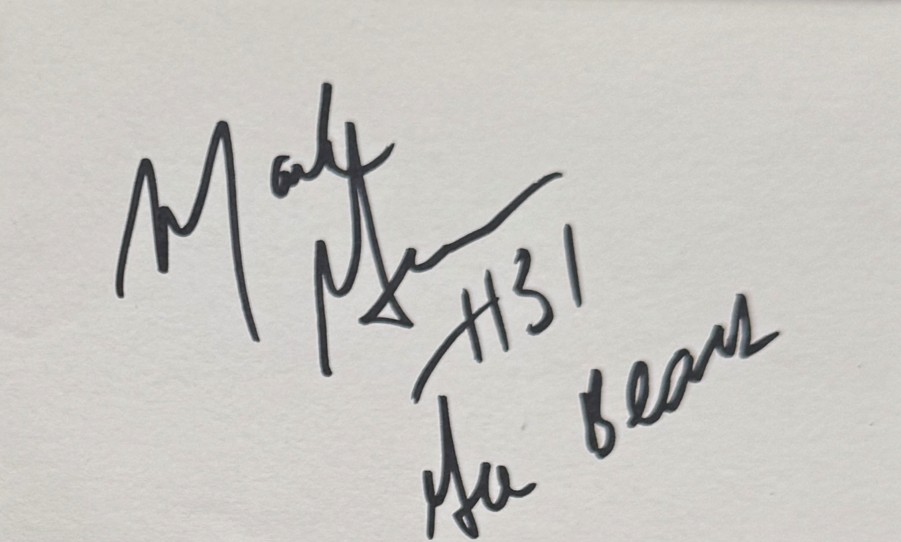 Mark Green
#31
Go Bears